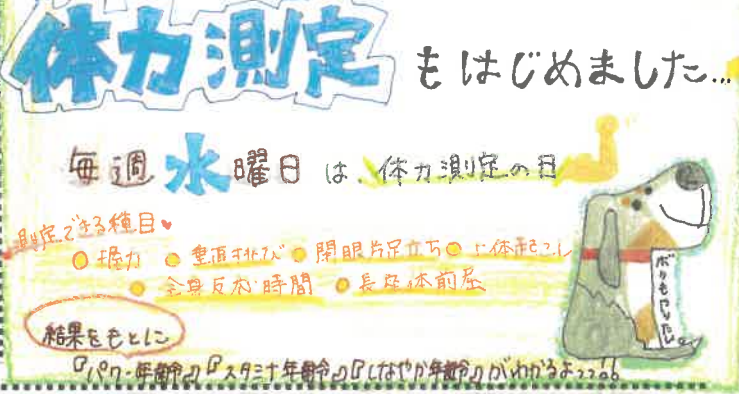 体力測定 もはじめました…
毎週水曜日は、体力測定の日
測定できる種目♥
●握力 ●垂直跳び ●閉眼片足立ち ●上体起こし
●全身反応時間 ●長座体前屈
ボクもやりたい
結果をもとに
『パワー年齢』『スタミナ年齢』『しなやか年齢』がわかるよっっ!!